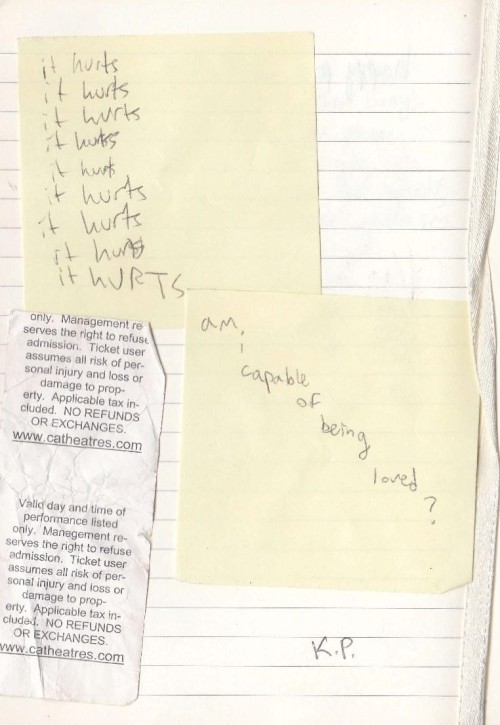 it hurts
it hurts
it hurts
it hurts
it hurt
it hurts
it hurts
it hurts
it HURTS
am
i
capable
of
being
loved
?
only. Management re
serves the right to refuse
admission. Ticket user
assumes all risk of per-
sonal injury and loss or
damage to prop-
erty. Applicable tax in-
cluded. NO REFUNDS
OR EXCHANGES.
www.catheatres.com
Valid day and time of
performance listed
only. Management re-
serves the right to refuse
admission. Ticket user
assumes all risk of per-
sonal injury and loss or
damage to prop-
erty. Applicable tax in-
cluded. NO REFUNDS
OR EXCHANGES.
www.catheatres.com
K.P.